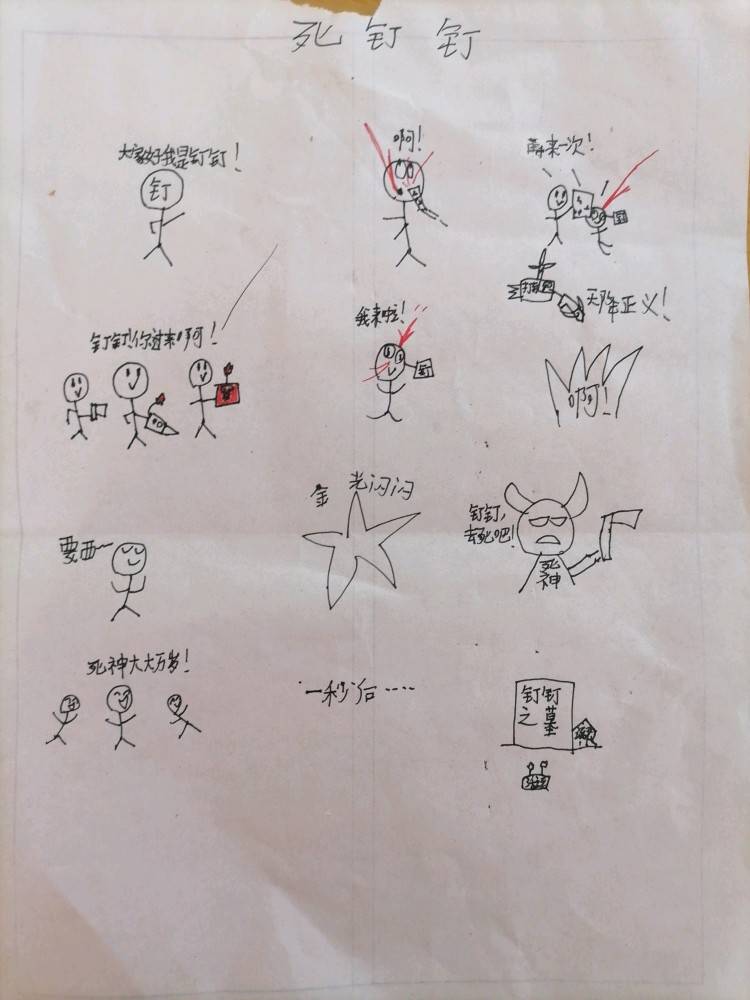 死钉钉
大家好我是钉钉！
钉
啊！
再来一次！
钉
钉钉！你过来啊！
我来啦！
钉
天降正义！
啊！
要西~
金光闪闪
钉钉，
去死吧！
死神
死神大大万岁！
一秒后····
钉钉
之墓